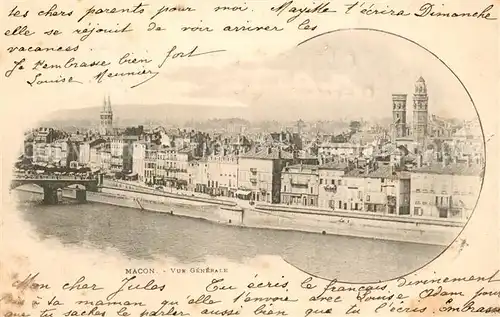 tes chers parents pour moi. Mayille t'écrira Dimanche
elle se réjouit de voir arriver les
vacances.
Je t'embrasse bien fort
Louise Meunier
MACON. - VUE GÉNÉRALE
Mon cher Jules Tu écris le français divinement
dis à ta maman qu'elle t'envoie avec Louise Adam pour
que tu saches le parler aussi bien que tu l'écris. Embrasse